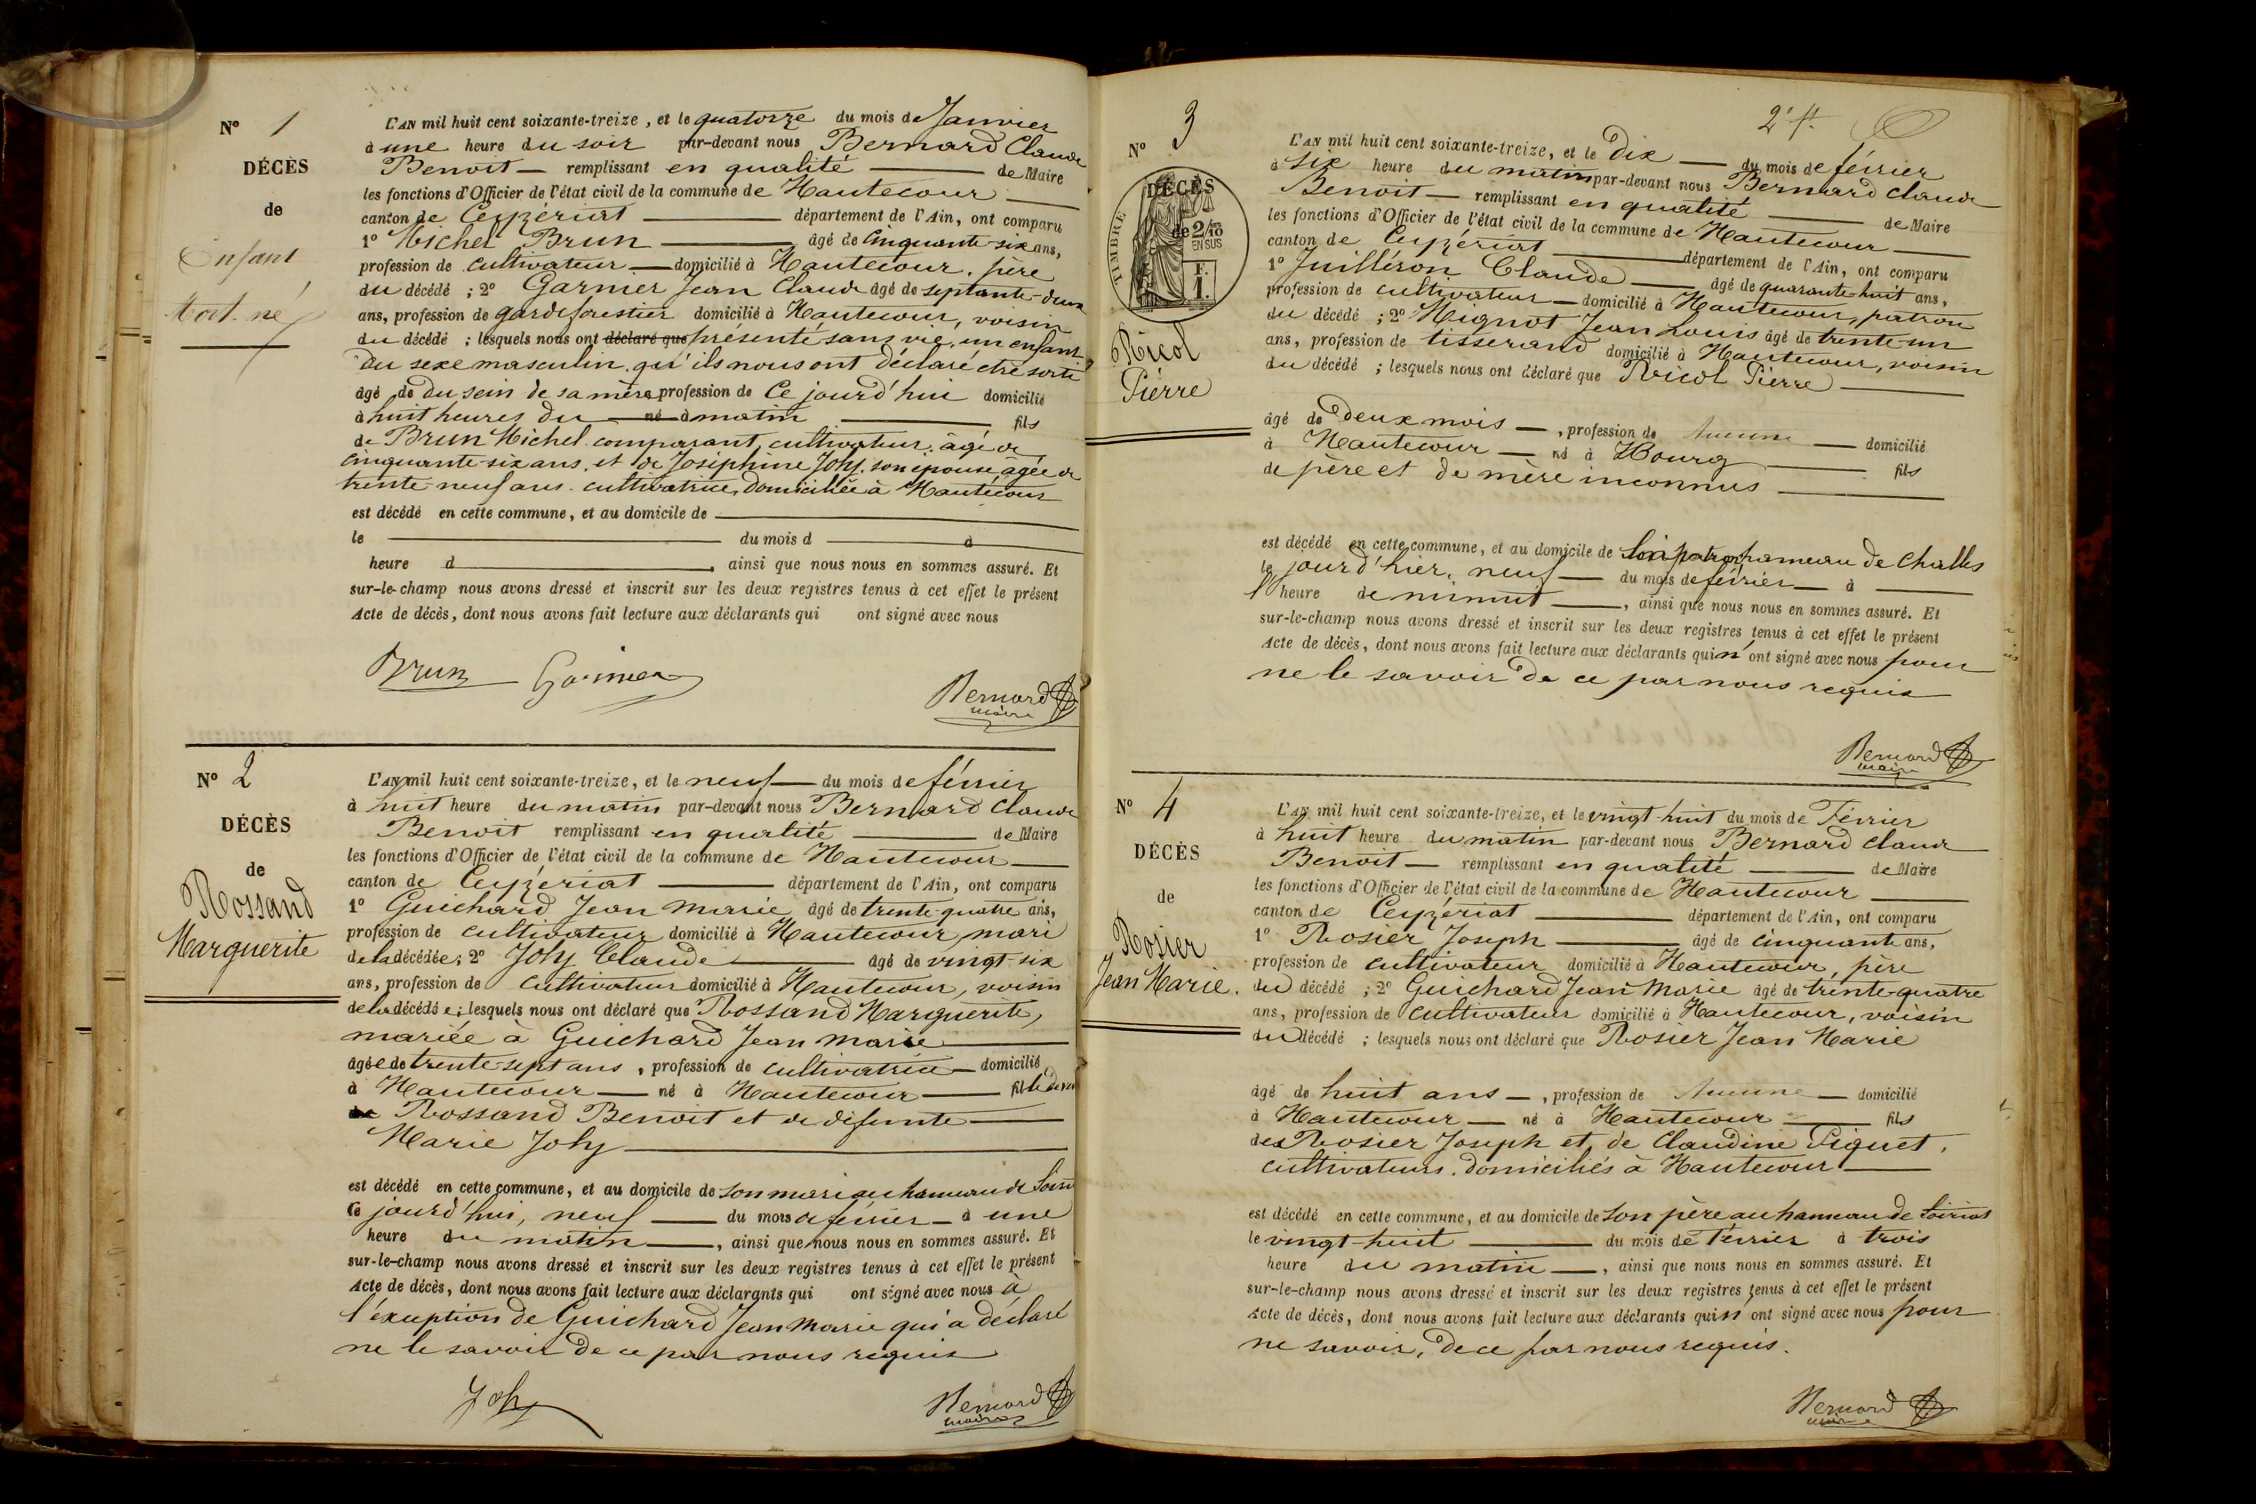 N° 1
DÉCÈS
de
Enfant
Mort-né
L'AN mil huit cent soixante-treize, et le quatorze du mois de Janvier
à une heure du soir par-devant nous Bernard Claude
Benoit — remplissant en qualité — de Maire
les fonctions d'Officier de l'état civil de la commune de Hautecour —
canton de Ceyzériat — département de l'Ain, ont comparu
1° Michel Brun — âgé de cinquante-six ans,
profession de cultivateur — domicilié à Hautecour, père
du décédé ; 2° Garnier Jean Claude âgé de septante-deux
ans, profession de gardeforestier domicilié à Hautecour, voisin
du décédé ; lesquels nous ont déclaré que présenté sans vie, un enfant
du sexe masculin, qu'ils nous ont déclaré être sorti
âgé de du sein de sa mère profession de Ce jourd'hui domicilié
à huit heures du — né à matin — fils
de Brun Michel comparant, cultivateur, âgé de
cinquante-six ans, et de Joséphine Joly, son épouse âgée de
trente-neuf ans, cultivatrice, domiciliée à Hautecour
est décédé en cette commune, et au domicile de —
le — du mois d — à
heure d —, ainsi que nous nous en sommes assuré. Et
sur-le-champ nous avons dressé et inscrit sur les deux registres tenus à cet effet le présent
Acte de décès, dont nous avons fait lecture aux déclarants qui ont signé avec nous
Brun Garnier Bernard
maire
N° 2
DÉCÈS
de
Rossand
Marguerite
L'AN mil huit cent soixante-treize, et le neuf — du mois de février
à huit heure du matin par-devant nous Bernard Claude
Benoit remplissant en qualité — de Maire
les fonctions d'Officier de l'état civil de la commune de Hautecour —
canton de Ceyzériat — département de l'Ain, ont comparu
1° Guichard Jean Marie âgé de trente-quatre ans,
profession de cultivateur domicilié à Hautecour, mari
de la décédée; 2° Joly Claude — âgé de vingt-six
ans, profession de cultivateur domicilié à Hautecour, voisin
de la décédée; lesquels nous ont déclaré que Rossand Marguerite,
mariée à Guichard Jean Marie —
âgée de trente-sept ans, profession de cultivatrice — domicilié
à Hautecour — né à Hautecour — fille
de Rossand Benoit et de défunte —
Marie Joly —
est décédé en cette commune, et au domicile de son mari au hameau de
le jourd'hui, neuf — du mois de février — à une
heure du matin —, ainsi que nous nous en sommes assuré. Et
sur-le-champ nous avons dressé et inscrit sur les deux registres tenus à cet effet le présent
Acte de décès, dont nous avons fait lecture aux déclarants qui ont signé avec nous à
l'exception de Guichard Jean Marie qui a déclaré
ne le savoir de ce par nous requis
Joly Bernard
maire
2e f.
N° 3
DÉCÈS
de
TIMBRE
2/10
EN SUS
F.
1.
Ricol
Pierre
L'AN mil huit cent soixante-treize, et le Dix — du mois de février
à six heure du matin par-devant nous Bernard Claude
Benoit — remplissant en qualité — de Maire
les fonctions d'Officier de l'état civil de la commune de Hautecour —
canton de Ceyzériat — département de l'Ain, ont comparu
1° Juilléron Claude — âgé de quarante-huit ans,
profession de cultivateur — domicilié à Hautecour, patron
du décédé ; 2° Mignot Jean Louis âgé de trente-un
ans, profession de tisserand domicilié à Hautecour, voisin
du décédé ; lesquels nous ont déclaré que Ricol Pierre —
âgé de Deux mois —, profession de Aucune — domicilié
à Hautecour — né à Bourg — fils
de père et de mère inconnus —
est décédé en cette commune, et au domicile de son patron hameau de Challes
le jourd'hier, neuf — du mois de février — à —
l'heure de minuit —, ainsi que nous nous en sommes assuré. Et
sur-le-champ nous avons dressé et inscrit sur les deux registres tenus à cet effet le présent
Acte de décès, dont nous avons fait lecture aux déclarants qui n'ont signé avec nous pour
ne le savoir de ce par nous requis
Bernard
maire
N° 4
DÉCÈS
de
Rosier
Jean Marie.
L'AN mil huit cent soixante-treize, et le vingt-huit du mois de Février
à huit heure du matin par-devant nous Bernard Claude
Benoit — remplissant en qualité — de Maire
les fonctions d'Officier de l'état civil de la commune de Hautecour —
canton de Ceyzériat — département de l'Ain, ont comparu
1° Rosier Joseph — âgé de cinquante ans,
profession de cultivateur domicilié à Hautecour, père
du décédé ; 2° Guichard Jean Marie âgé de trente-quatre
ans, profession de cultivateur domicilié à Hautecour, voisin
du décédé ; lesquels nous ont déclaré que Rosier Jean Marie
âgé de huit ans —, profession de Aucune — domicilié
à Hautecour — né à Hautecour — fils
de Rosier Joseph et de Claudine Piquet,
cultivateurs, domiciliés à Hautecour —
est décédé en cette commune, et au domicile de son père au hameau de Soiriat
le vingt-huit — du mois de Février à trois
heure du matin —, ainsi que nous nous en sommes assuré. Et
sur-le-champ nous avons dressé et inscrit sur les deux registres tenus à cet effet le présent
Acte de décès, dont nous avons fait lecture aux déclarants qui n'ont signé avec nous pour
ne savoir, de ce par nous requis.
Bernard
maire